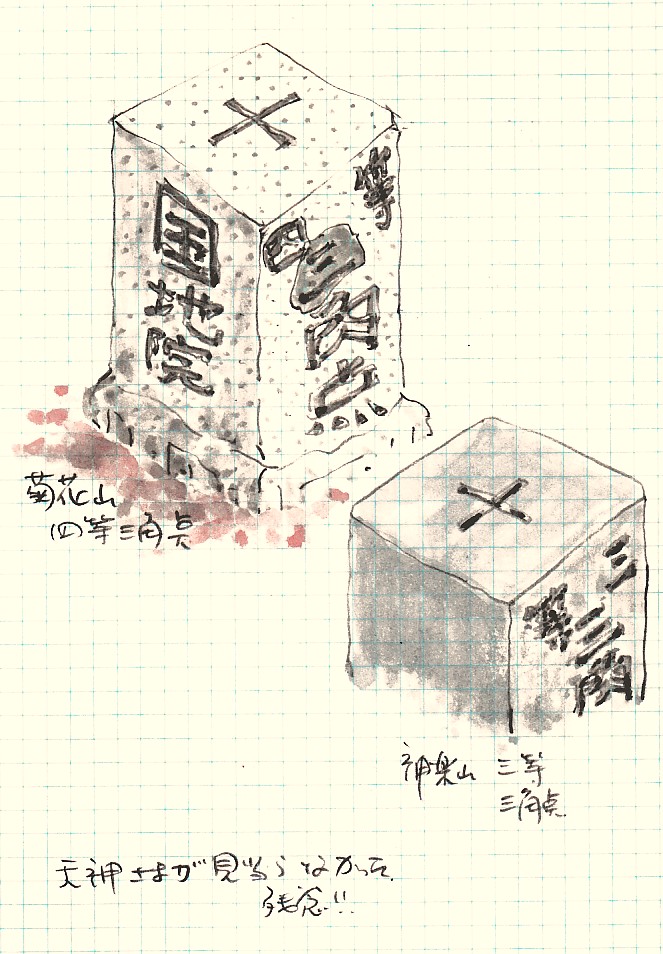 国地院
四等
三角点
菊花山
四等三角点
三等
三角
神楽山 三等
三角点
天神さまが見当らなかった
残念!!